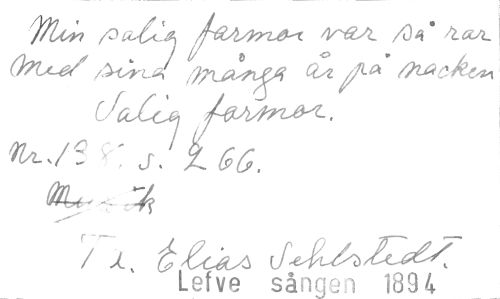 Min salig farmor var så rar
med sina många år på nacken
Salig farmor.
Nr. 138. s. 266.
T. Elias Sehlstedt.
Lefve sången 1894